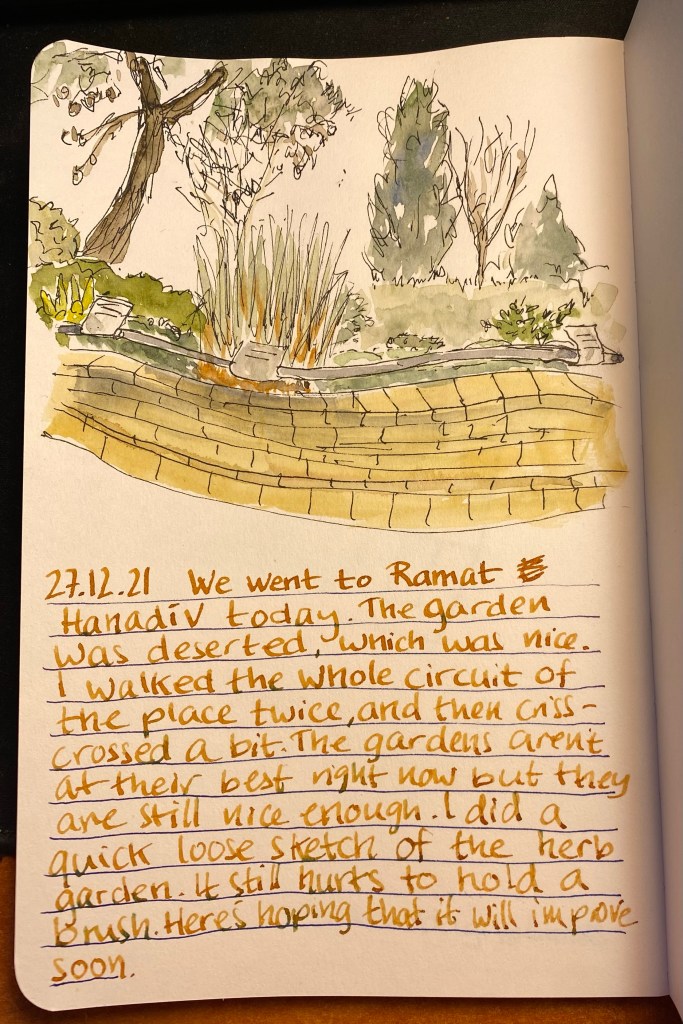 27.12.21 We went to Ramat
Hanadiv today. The garden
was deserted, which was nice.
I walked the whole circuit of
the place twice, and then criss-
crossed a bit. The gardens aren't
at their best right now but they
are still nice enough. I did a
quick loose sketch of the herb
garden. It still hurts to hold a
brush. Here's hoping that it will improve
soon.